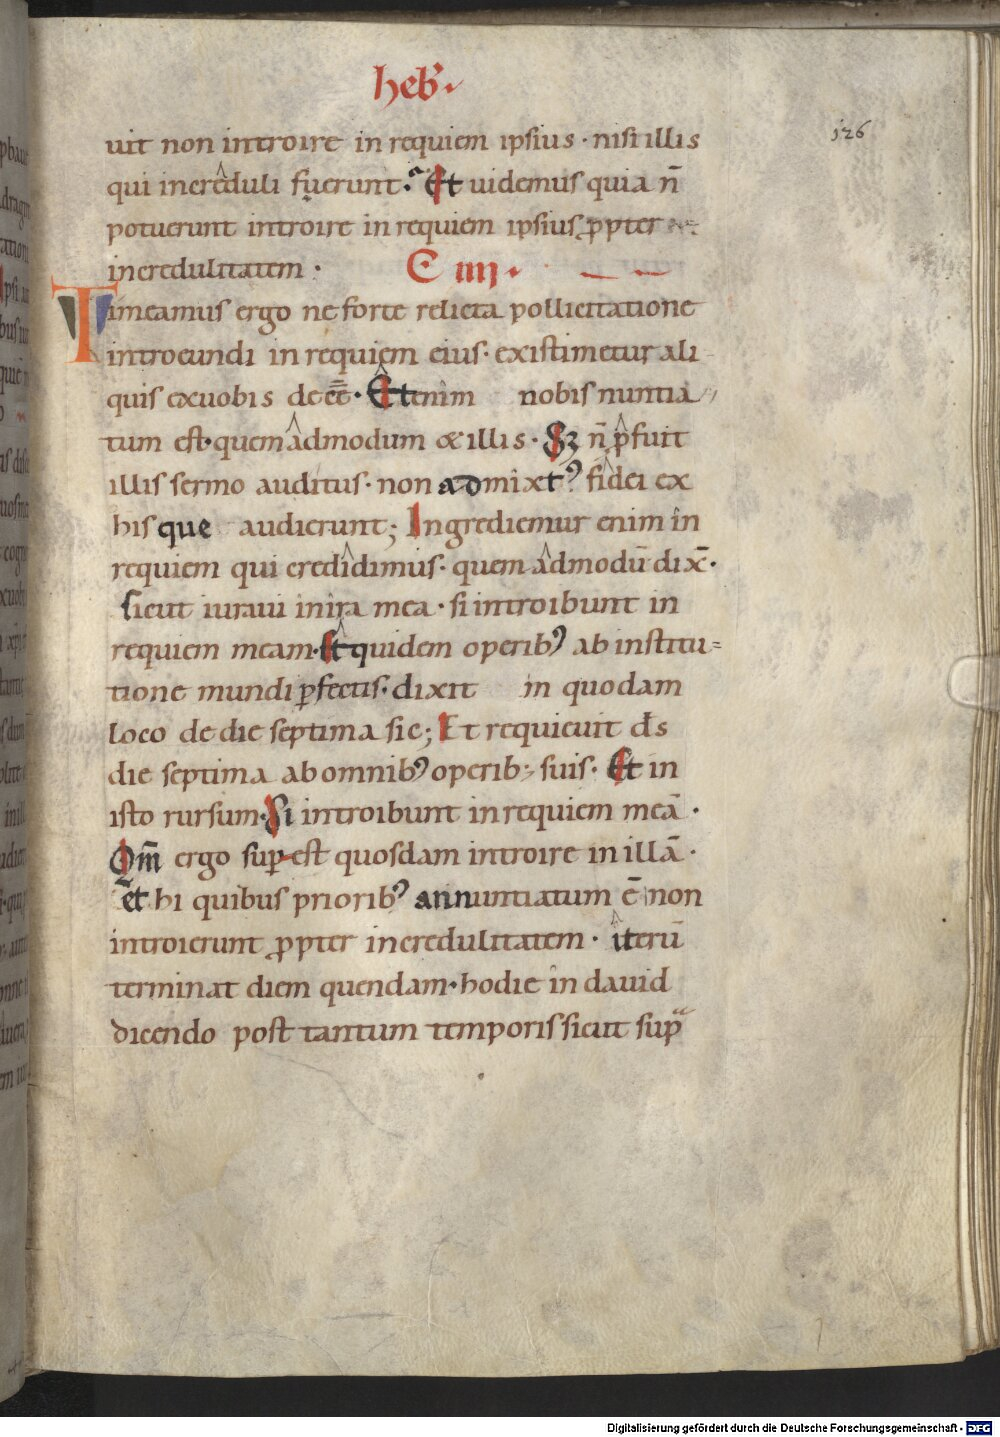 heb᷒.
126
uit non introire in requiem ipsius · nisi illis
qui increduli fuerunt. Et uidemus quia n̄
potuerunt introire in requiem ipsius ꝓpter
incredulitatem ·
C iiij.
Timeamus ergo ne forte relicta pollicitatione
introeundi in requiem eius · existimetur ali
quis ex uobis deeē · Etenim nobis nuntia
tum est · quem admodum & illis · Sꝫ n̄ ꝓfuit
illis sermo auditus · non admixtꝰ fidei ex
his que audierunt; Ingrediemur enim in
requiem qui credidimus · quem admodū dix̄ ·
Sicut iuraui in ira mea · si introibunt in
requiem meam · Et quidem operibꝰ ab institu=
tione mundi ꝑfectis · dixit in quodam
loco de die septima sic; Et requieuit ds̄
die septima ab omnibꝰ operib; suis · Et in
isto rursum · Si introibunt in requiem meā ·
Qm̄ ergo suꝑest quosdam introire in illā ·
et hi quibus prioribꝰ annuntiatum ē non
introierunt ꝓpter incredulitatem · iterū
terminat diem quendam · hodie in dauid
dicendo post tantum temporis sicut sup̄
Digitalisierung gefördert durch die Deutsche Forschungsgemeinschaft - DFG